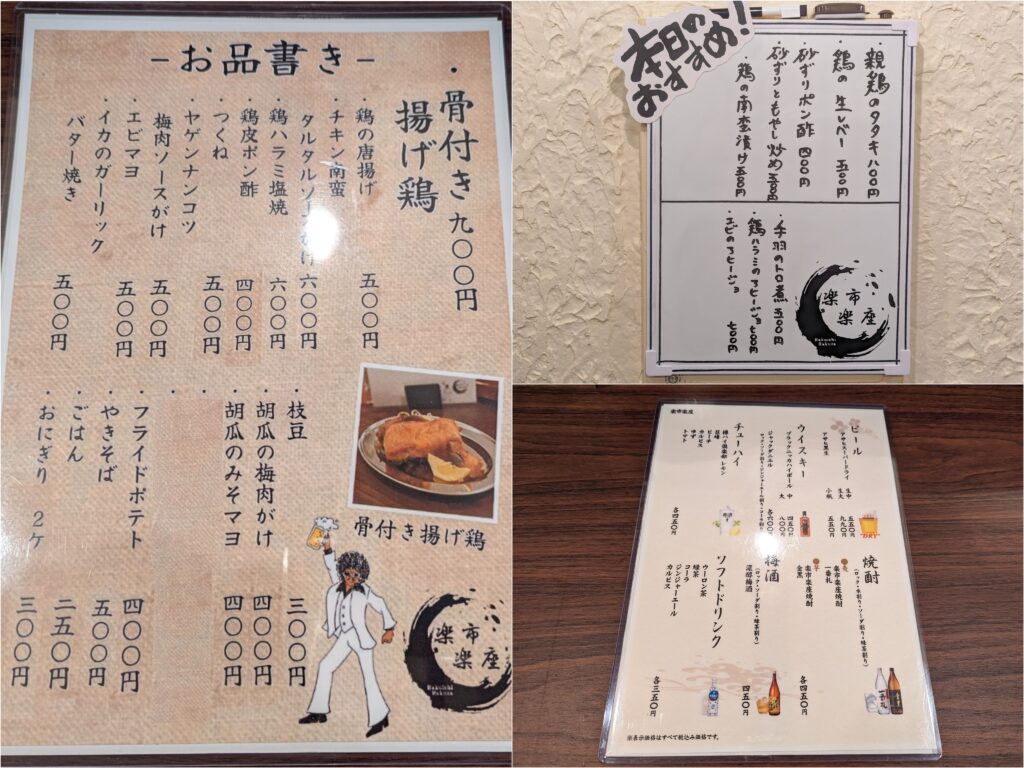 -お品書き-
・骨付き 九〇〇円
揚げ鶏
・鶏の唐揚げ 五〇〇円
・チキン南蛮
タルタルソースがけ 六〇〇円
・鶏ハラミ塩焼 六〇〇円
・鶏皮ポン酢 四〇〇円
・つくね 五〇〇円
・ヤゲンナンコツ
梅肉ソースがけ 五〇〇円
・エビマヨ 五〇〇円
・イカのガーリック
バター焼き 五〇〇円
・枝豆 三〇〇円
・胡瓜の梅肉がけ 四〇〇円
・胡瓜のみそマヨ 四〇〇円
・フライドポテト 四〇〇円
・やきそば 五〇〇円
・ごはん 二五〇円
・おにぎり 2ケ 三〇〇円
骨付き揚げ鶏
楽市
楽座
Rakuichi
Rakuza
本日の
おすすめ!
・親鶏のタタキ 八〇〇円
・鶏の生レバー 五〇〇円
・砂ずりポン酢 四〇〇円
・砂ずりともやし炒め 五〇〇円
・鶏の南蛮漬け 五〇〇円
・手羽のトロ煮 五〇〇円
・鶏ハラミのアヒージョ 七〇〇円
・エビのアヒージョ 七〇〇円
楽市
楽座
Rakuichi
Rakuza
楽市楽座
ビール
アサヒスーパードライ
生中 五五〇円
生大 九九〇円
アサヒ瓶生 小瓶 五五〇円
DRY
ウイスキー
ブラックニッカハイボール
中 四五〇円
大 八〇〇円
ジャックダニエル 各六〇〇円
チューハイ
樽ハイ倶楽部 レモン
巨峰
ピーチ
カルピス
ゆず
トマト
各四五〇円
焼酎
(ロック・水割り・ソーダ割り・緑茶割り)
楽市楽座焼酎
一番札
楽市楽座焼酎
金黒
各四五〇円
梅酒
(ロック・ソーダ割り・緑茶割り)
濃醇梅酒 四五〇円
ソフトドリンク
ウーロン茶
緑茶
コーラ
ジンジャーエール
カルピス
各三五〇円
※表示価格はすべて税込み価格です。